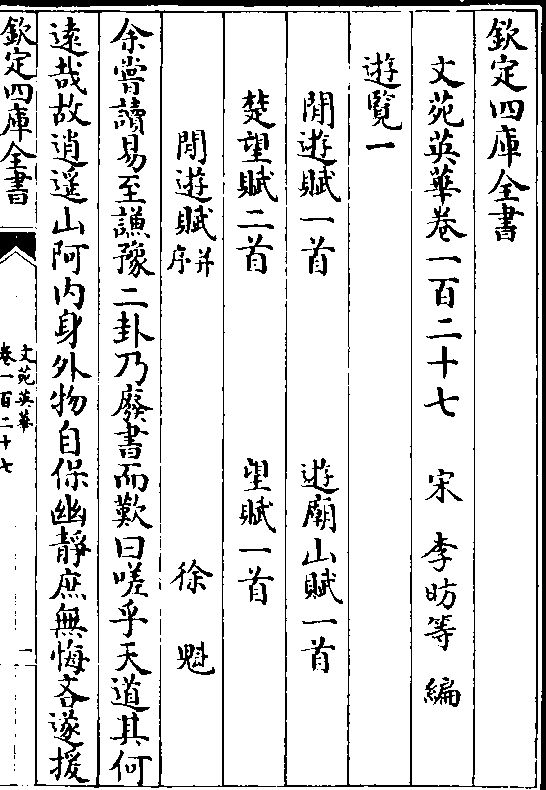 欽定四庫全書
文苑英華卷一百二十七 宋 李昉等 編
遊覽一
閒遊賦一首 遊廟山賦一首
楚望賦二首 望賦一首
閒遊賦并序 徐魁
余嘗讀易至謙豫二卦乃廢書而歎曰嗟乎天道其何
遠哉故逍遥山阿内身外物自保幽靜庶無悔吝遂援
欽定四庫全書
文苑英華
卷一百二十七
一